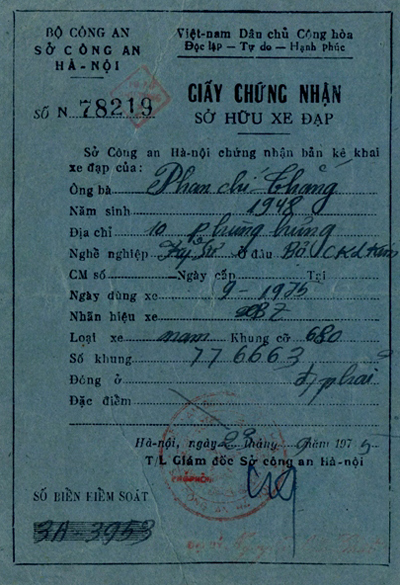 BỘ CÔNG AN
SỞ CÔNG AN
HÀ-NỘI
Việt-nam Dân chủ Cộng hòa
Độc lập — Tự do — Hạnh phúc
SỐ N 78219
GIẤY CHỨNG NHẬN
SỞ HỮU XE ĐẠP
Sở Công an Hà-nội chứng nhận bản kê khai
xe đạp của:
Ông bà Phan chí Thắng
Năm sinh 1948
Địa chỉ 10 Phùng hưng
Nghề nghiệp Kỹ Sư Ở đâu Bộ CKL Kim
CM số Ngày cấp Tại
Ngày dùng xe 9-1975
Nhãn hiệu xe
Loại xe nam Khung cỡ 680
Số khung 776663
Đóng ở đ phải
Đặc điểm
Hà-nội, ngày 29 tháng 9 năm 1975
T/L Giám đốc Sở công an hà-nội
SỐ BIỂN KIỂM SOÁT
3A-3953